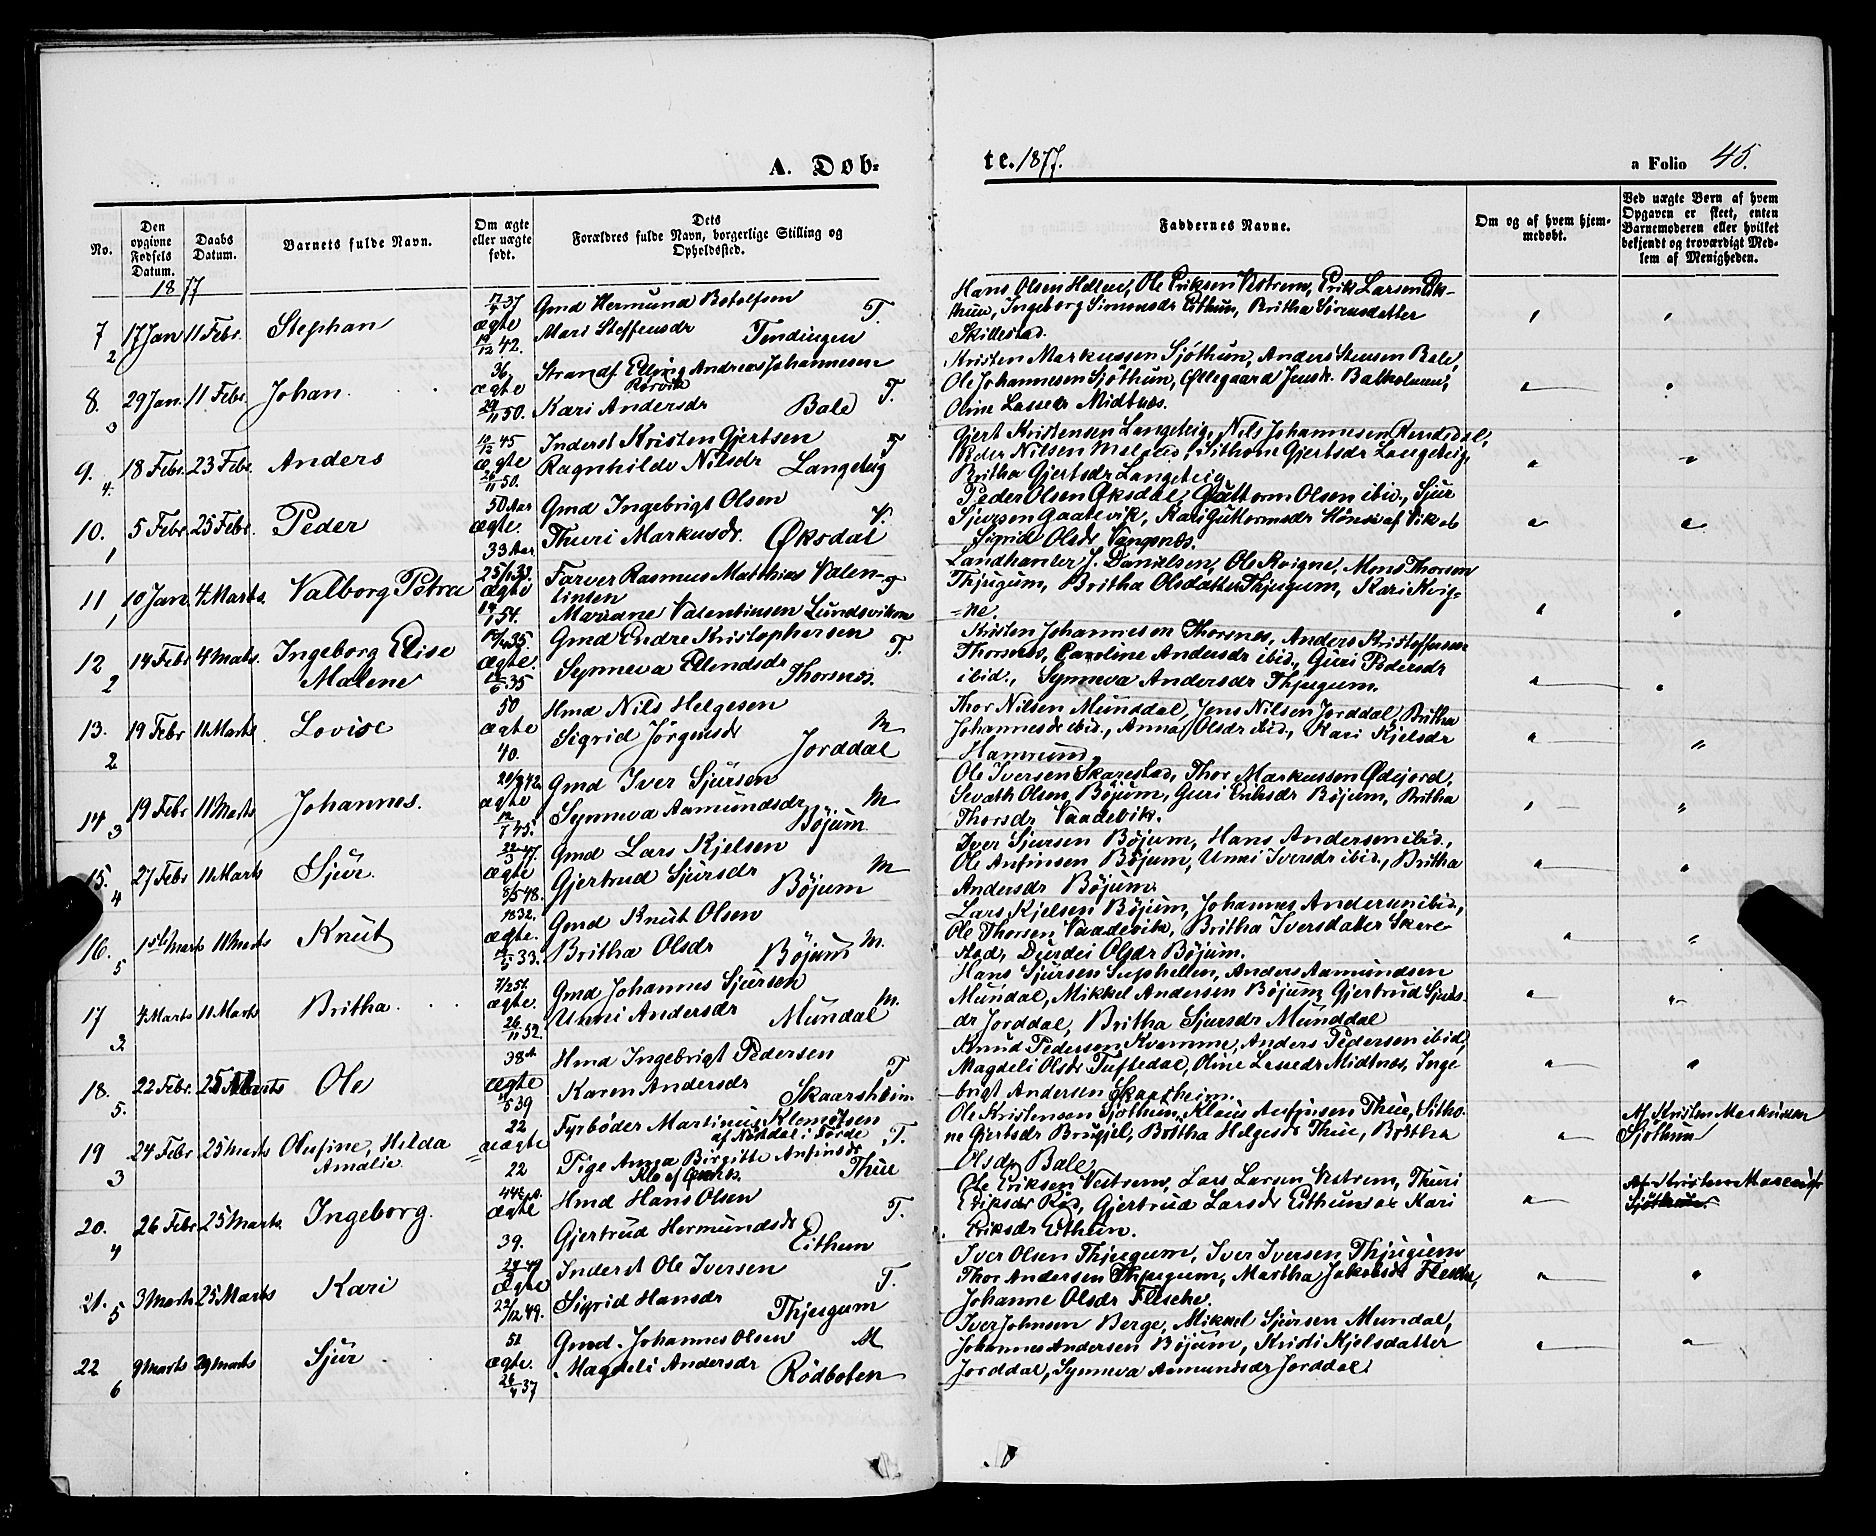 A. Døb-
te. 1877.
a Folio 45.
No.
Den opgivne Fødsels Datum.
Daabs Datum.
Barnets fulde Navn.
Om ægte eller uægte født.
Dets Forældres fulde Navn, borgerlige Stilling og Opholdssted.
Faddernes Navne.
Om og af hvem hjemmedøbt.
Ved uægte Børn af hvem Opgaven er skeet, enten Barnemoderen eller hvilket bekjendt og troværdigt Medlem af Menigheden.
1877
7 2 17 Jan 11 Febr. Stephan ægte 37 42.
Gmd Hermund Botolfsen T.
Mari Steffensdr Tendingen
Hans Olsen Hellene, Ole Eriksen Vestrem, Erik Larsen Eit-
hun, Ingeborg Simonsdr Eithun, Britha Sørensdatter
Skillestad.
8. 3 29 Jan. 11 Febr. Johan. 36 ægte 29/11 50.
Strands. Elling Andreas Johannesen
Rørvik T.
Kari Andersdr Bale
Kristen Markussen Sjøthun, Anders Stensen Bale,
Ole Johannesen Sjøthun, Øllegaard Jensdr. Balholmen,
Oline Lassedr Midtnes.
9. 4. 18 Febr. 23 Febr. Anders 45 ægte 50.
Inderst Kristen Gjertsen T
Ragnhilde Nilsdr Langeteig
Gjert Kristensen Langeteig, Nils Johannesen Rendedal,
Peder Nilsen Melaas, Sithone Gjertsdr Langeteig,
Britha Gjertsdr Langeteig
10. 1 5 Febr. 25 Febr. Peder 50 Aar ægte. 33 Aar
Gmd Ingebrigt Olsen V.
Thuri Markusdr. Øksdal
Peder Olsen Øksdal, Guttorm Olsen ibid., Sjur
Sjursen Gaatevik, Kari Guttormsdr Hønsi af Vik og
Sigrid Olsdr Vangsnes.
11 1 10 Jan 4 Marts Valborg Petra 25/1 39. ægte 54.
Farver Rasmus Matthias Valen- T
tinsen
Mariane Valentinsen Lundsviken
Landhanler J. Danielsen, Ole Kvigne, Mons Thorsen
Thjugum, Britha Olsdatter Thjugum, Kari Kvig-
ne
12 2 14 Febr 4 Mats. Ingeborg Elise Malene 35. ægte. 35
Gmd Endre Kristophersen T.
Synneva Erlendsdr Thorsnes.
Kristen Johannesen Thorsnes, Anders Kristoffersen
Thorsnes, Caroline Andersdr ibid., Guri Pedersdr
ibid., Synneva Andersdr Thjugum.
13. 2 19 Febr 11 Marts Lovise 50 ægte 40.
Hmd Nils Helgesen M
Sigrid Jørgensdr Jorddal
Thor Nilsen Munddal, Jens Nilsen Jorddal, Britha
Johannesdr ibid., Anna Olsdr ibid., Kari Kjelsdr
Hamrum.
14 3 19 Febr 11 Marts Johannes. 20/3 42 ægte 12/7 45.
Gmd Iver Sjursen M
Synneva Aamundsdr Bøjum
Ole Iversen Skarestad, Thor Markussen Ødejord,
Sevath Olsen Bøjum, Guri Eriksdr Bøjum, Britha
Thorsdr Vaadevik.
15. 4 27 Febr 11 Marts Sjur. 22/3 47. ægte 8/5 48.
Gmd Lars Kjelsen M
Gjertrud Sjursdr Bøjum
Iver Sjursen Bøjum, Hans Andersen ibid.,
Ole Anfinsen Bøjum, Unni Iversdr ibid., Britha
Andersdr Bøjum.
16. 5 1ste Marts 11 Marts Knut 1832. ægte. 33.
Gmd Knut Olsen
Britha Olsdr Bøjum M.
Lars Kjelsen Bøjum, Johannes Andersen ibid.,
Ole Thorsen Vaadevik, Britha Iversdatter Skare-
stad, Durdei Olsdr Bøjum.
17 3 4 Marts 11 Marts Britha. 7/2 51. ægte. 26/11 52.
Gmd Johannes Sjursen M.
Unni Andersdr Mundal
Hans Sjursen Suphellen, Anders Aamundsen
Mundal, Mikkel Andersen Bøjum, Gjertrud Sjurs-
dr Jorddal, Britha Sjursdr Munddal
18. 5. 22 Febr. 25 Marts Ole 38 ægte 39
Hmd Ingebrigt Pedersen T
Karen Andersdr Skaarsheim.
Knud Pedersen Kvamme, Anders Pedersen ibid,
Magdeli Olsdr Tuftedal, Oline Lassedr Midtnes, Inge
brigt Andersen Skarsheim.
19 3 24 Febr. 25 Marts Olufine, Hilda Amalie 22 uægte 22
Fyrbøder Martinus Klemetsen
af Nikdal i Førde T.
Pige Anna Birgitte Anfinsdr
Thue
Ole Kristensen Sjøthun, Klaus Anfinsen Thue, Sitho-
ne Gjertsdr Bruyjel, Brittha Helgesdr Thue, Brittha
Olsdr Bale
Af Kristen Markussen
Sjøthun
20. 4 26 Febr 25 Marts Ingeborg. ægte 39.
Hmd Hans Olsen T.
Gjertrud Hermundsdr Eithun
Ole Eriksen Vestrem, Lars Larsen Vestrem, Thuri
Eriksdr Røs, Gjertrud Larsdr Eithun og Kari
Eriksdr Eithun.
21. 5 3 Marts 25 Marts Kari 49 ægte 23/12 49.
Inderst Ole Iversen T.
Sigrid Hansdr Thjugum
Iver Olsen Thjugum, Iver Iversen Thjugum
Thor Andersen Thjugum, Martha Jakobsdr Flesche,
Johanne Olsdr Flesche.
22 6 9 Marts 29 Marts Sjur 51 ægte. 37
Gmd. Johannes Olsen M
Magdeli Andersdr Rødboten
Iver Johnsen Berge, Mikkel Sjursen Mundal,
Johannes Andersen Bøjum, Kristi Kjelsdatter
Jorddal, Synneva Aamundsdr Jorddal.